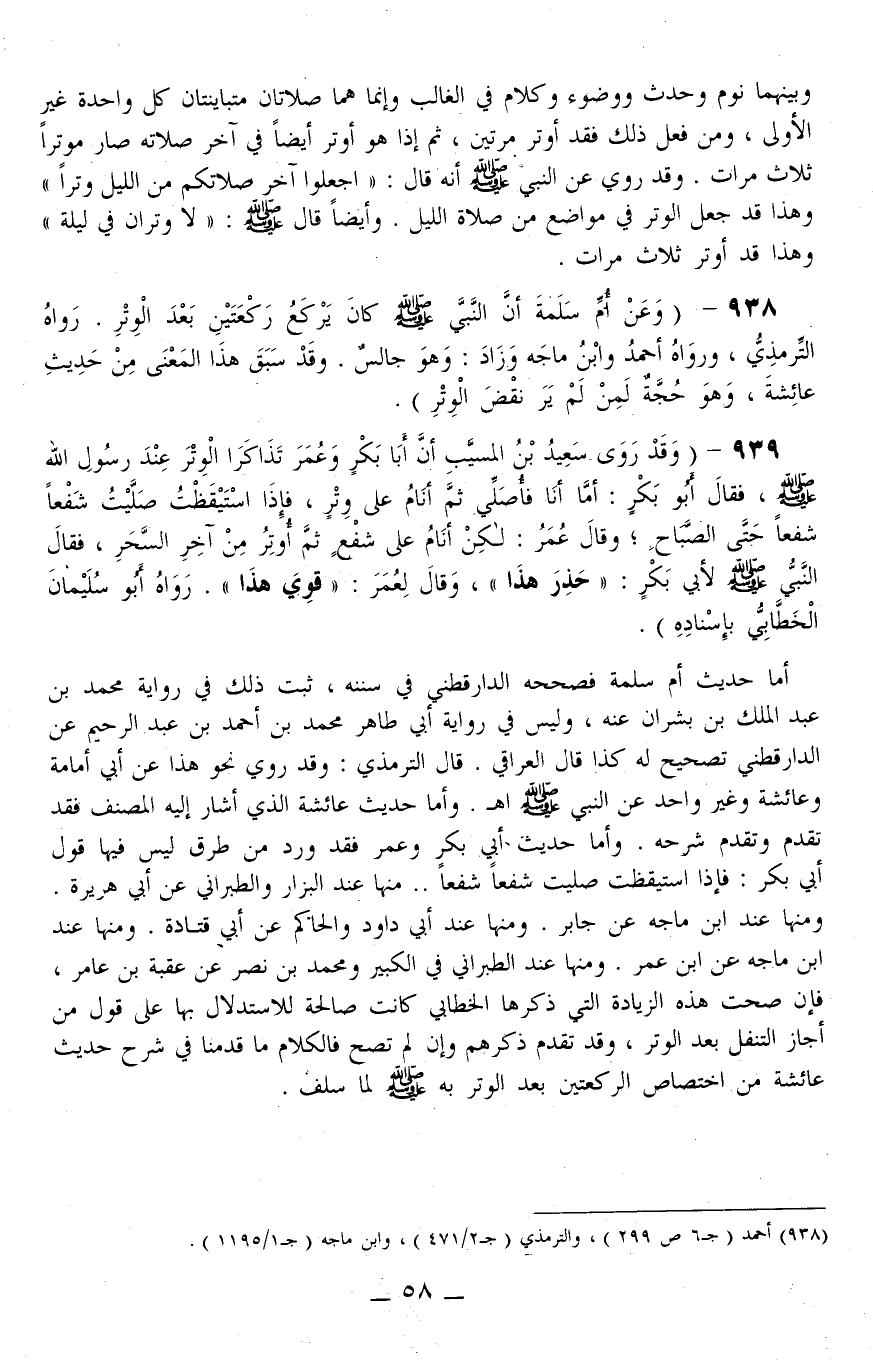 وبينهما نوم وحدث ووضوء وكلام في الغالب وإنما هما صلاتان متباينتان كل واحدة غير
الأولى ، ومن فعل ذلك فقد أوتر مرتين ، ثم إذا هو أوتر أيضاً في آخر صلاته صار موتراً
ثلاث مرات . وقد روي عن النبي ﷺ أنه قال : « اجعلوا آخر صلاتكم من الليل وتراً »
وهذا قد جعل الوتر في مواضع من صلاة الليل . وأيضاً قال ﷺ : « لا وتران في ليلة »
وهذا قد أوتر ثلاث مرات .
٩٣٨ - ( وَعَنْ أُمِّ سَلَمَةَ أنَّ النَّبيَّ ﷺ كانَ يَرْكَعُ رَكْعَتَيْنِ بَعْدَ الْوِتْرِ . رَواهُ
التِّرمذِيُّ ، ورَواهُ أحمدُ وابْنُ ماجَه وَزَادَ : وَهوَ جالسٌ . وقَدْ سَبَقَ هذَا المَعْنَى مِنْ حَدِيثِ
عائِشةَ ، وَهوَ حُجَّةٌ لَمِنْ لَمْ يَرَ نقْضَ الْوِتْرِ ) .
٩٣٩ - ( وَقَدْ رَوَى سَعِيدُ بْنُ المسيَّبِ أنَّ أَبَا بَكْرٍ وَعُمَرَ تَذَاكَرَا الْوِتْرَ عِنْدَ رسُولِ الله
ﷺ ، فقالَ أَبُو بَكْرٍ : أمَّا أنَا فأُصَلِّي ثمَّ أنَامُ على وِتْرٍ ، فإِذَا اسْتَيْقَظْتُ صَلَّيْتُ شَفْعاً
شفعاً حَتَّى الصَّبَاحِ ؛ وقالَ عُمَرُ : لٰكِنْ أنَامُ على شفْعٍ ثمَّ أُوتِرُ مِنْ آخِرِ السَّحَرِ ، فقالَ
النَّبيُّ ﷺ لأبي بَكْرٍ : « حَذِرَ هذَا » ، وَقَالَ لِعُمَرَ : « قوِيَ هذَا » . رَوَاهُ أَبُو سُلَيْمانَ
الْخَطَّابِيُّ بإِسْنادِهِ ) .
أما حديث أم سلمة فصححه الدارقطني في سننه ، ثبت ذلك في رواية محمد بن
عبد الملك بن بشران عنه ، وليس في رواية أبي طاهر محمد بن أحمد بن عبد الرحيم عن
الدارقطني تصحيح له كذا قال العراقي . قال الترمذي : وقد روي نحو هذا عن أبي أمامة
وعائشة وغير واحد عن النبي ﷺ اهـ . وأما حديث عائشة الذي أشار إليه المصنف فقد
تقدم وتقدم شرحه . وأما حديث أبي بكر وعمر فقد ورد من طرق ليس فيها قول
أبي بكر : فإذا استيقظت صليت شفعاً شفعاً .. منها عند البزار والطبراني عن أبي هريرة .
ومنها عند ابن ماجه عن جابر . ومنها عند أبي داود والحاكم عن أبي قتادة . ومنها عند
ابن ماجه عن ابن عمر . ومنها عند الطبراني في الكبير ومحمد بن نصر عن عقبة بن عامر ،
فإن صحت هذه الزيادة التي ذكرها الخطابي كانت صالحة للاستدلال بها على قول من
أجاز التنفل بعد الوتر ، وقد تقدم ذكرهم وإن لم تصح فالكلام ما قدمنا في شرح حديث
عائشة من اختصاص الركعتين بعد الوتر به ﷺ لما سلف .
(٩٣٨) أحمد ( جـ٦ ص ٢٩٩ ) ، والترمذي ( جـ٤٧١/٢ ) ، وابن ماجه ( جـ١١٩٥/١ ) .
ـ ٥٨ ـ